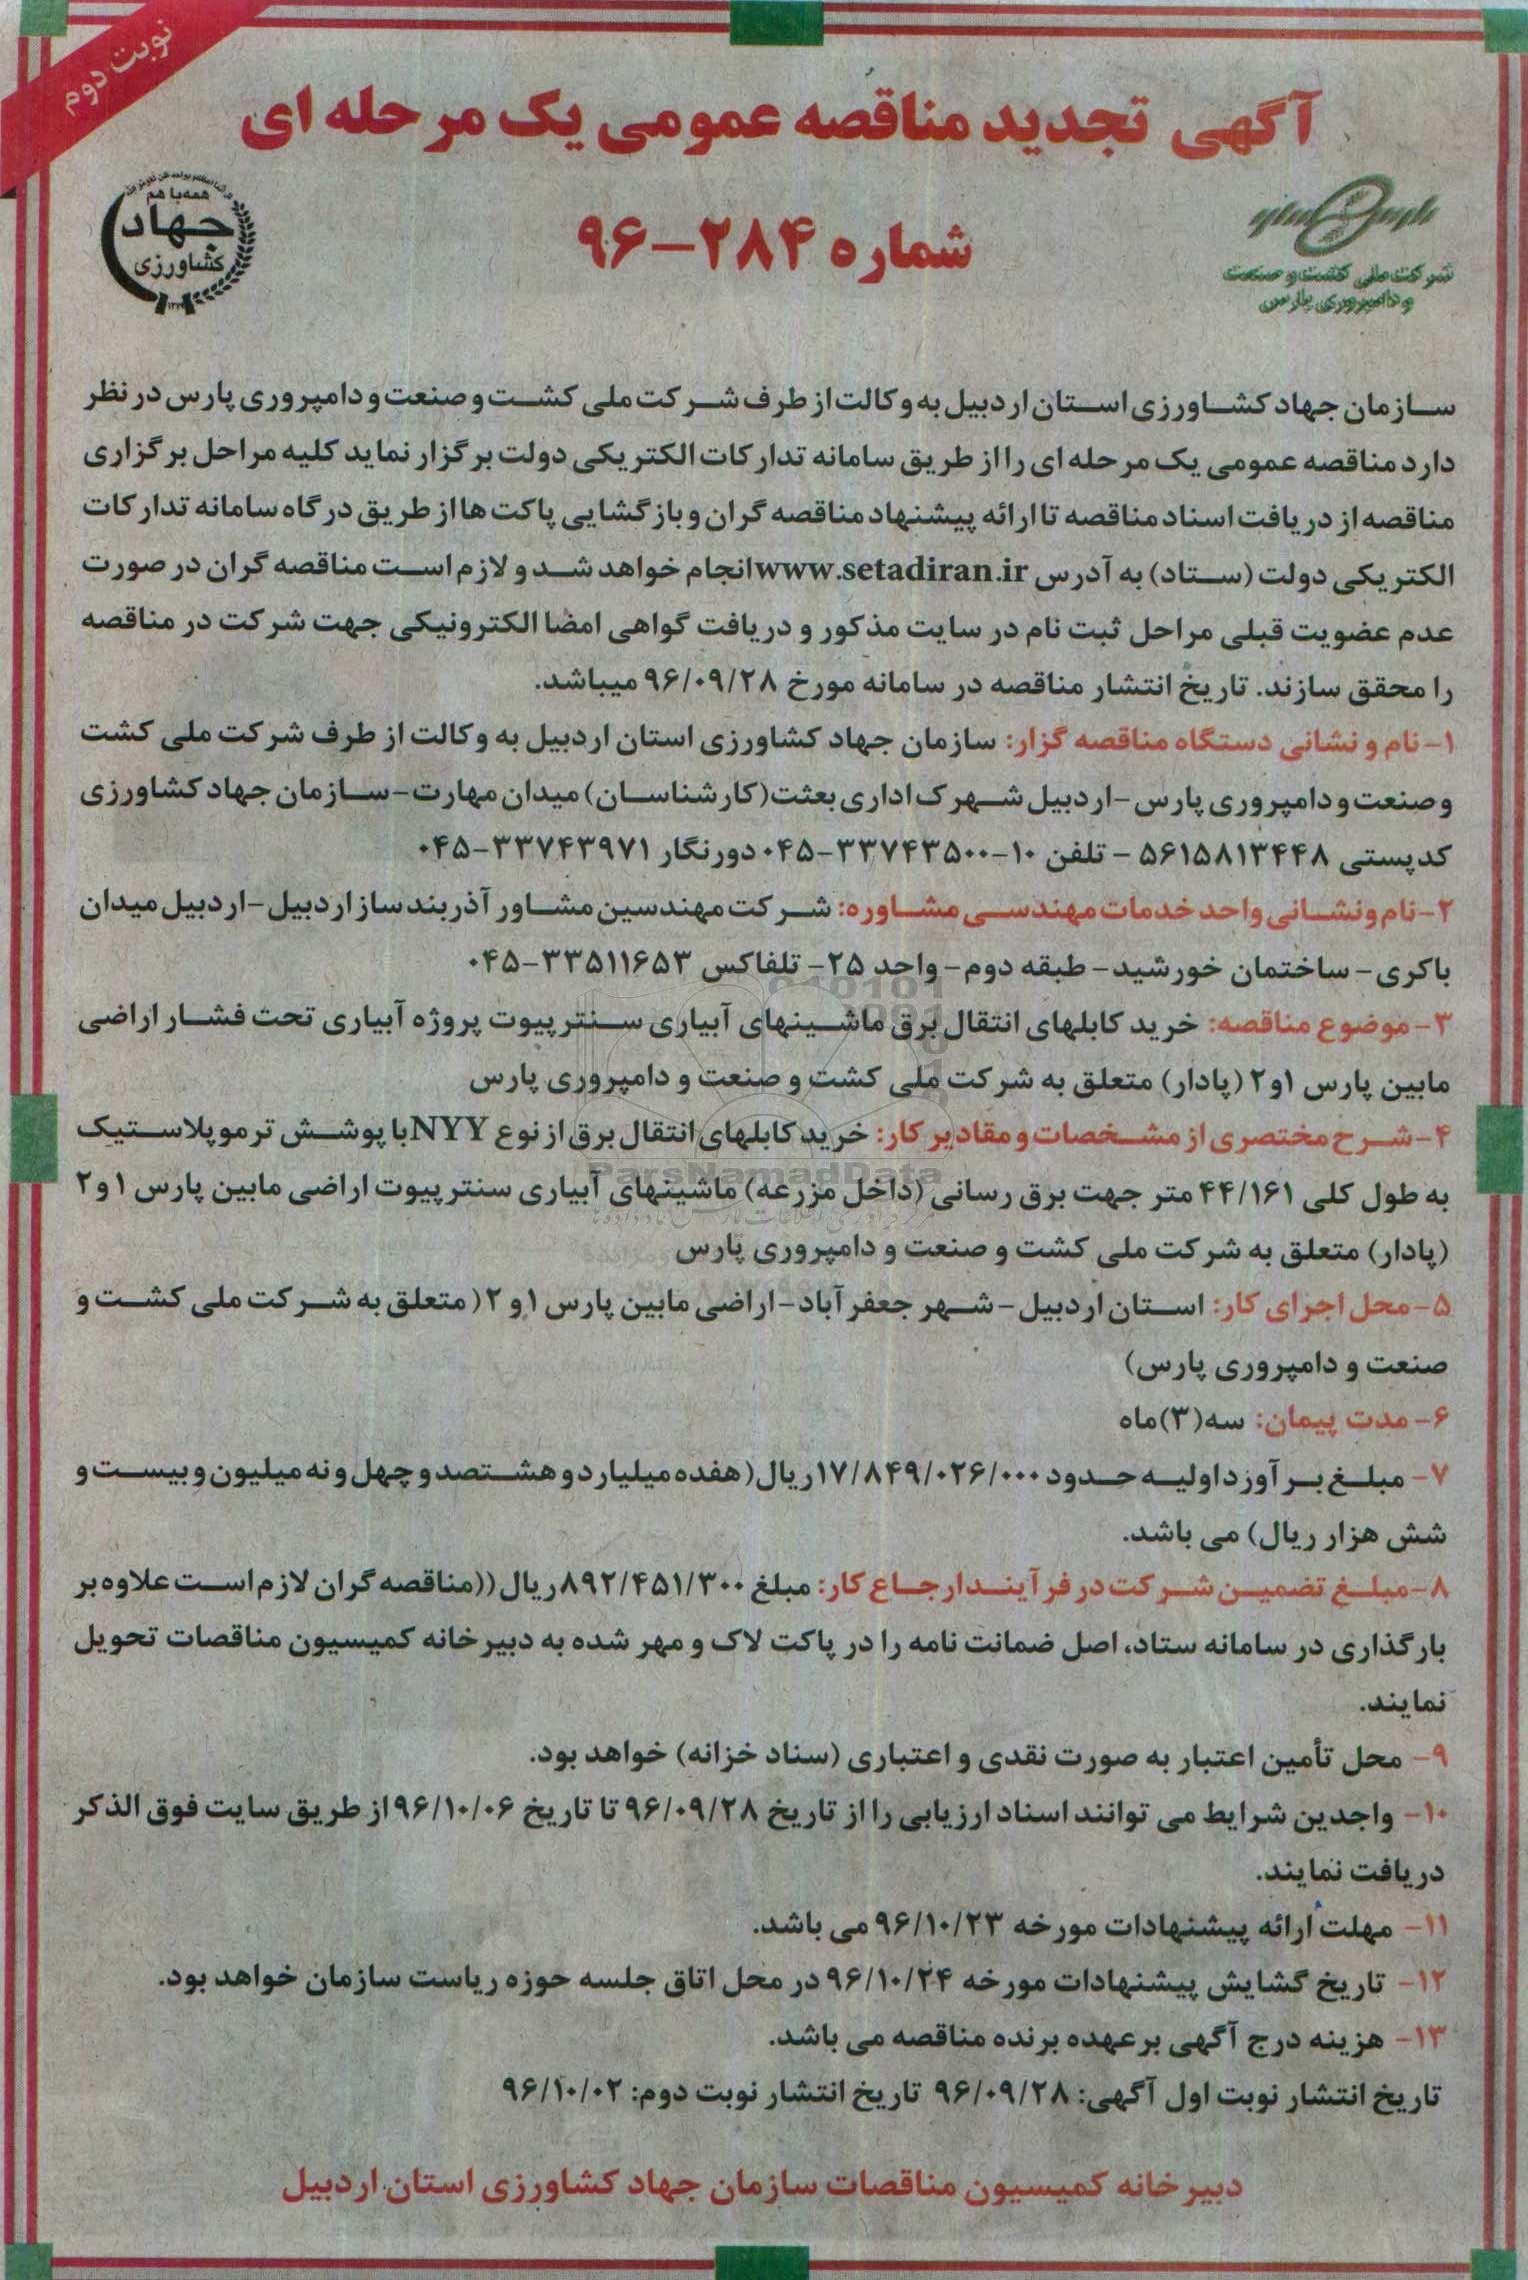 نوبت دوم
آگهی تجدید مناقصه عمومی یک مرحله ای
شماره ۲۸۴-۹۶
همه با هم
جهاد
کشاورزی
شرکت ملی کشت و صنعت
و دامپروری پارس
سازمان جهاد کشاورزی استان اردبیل به وکالت از طرف شرکت ملی کشت و صنعت و دامپروری پارس در نظر
دارد مناقصه عمومی یک مرحله ای را از طریق سامانه تدارکات الکتریکی دولت برگزار نماید کلیه مراحل برگزاری
مناقصه از دریافت اسناد مناقصه تا ارائه پیشنهاد مناقصه گران و بازگشایی پاکت ها از طریق درگاه سامانه تدارکات
الکتریکی دولت (ستاد) به آدرس www.setadiran.ir انجام خواهد شد و لازم است مناقصه گران در صورت
عدم عضویت قبلی مراحل ثبت نام در سایت مذکور و دریافت گواهی امضا الکترونیکی جهت شرکت در مناقصه
را محقق سازند. تاریخ انتشار مناقصه در سامانه مورخ ۹۶/۰۹/۲۸ میباشد.
۱- نام و نشانی دستگاه مناقصه گزار: سازمان جهاد کشاورزی استان اردبیل به وکالت از طرف شرکت ملی کشت
و صنعت و دامپروری پارس -اردبیل شهرک اداری بعثت(کارشناسان) میدان مهارت- سازمان جهاد کشاورزی
کد پستی ۵۶۱۵۸۱۳۴۴۸ - تلفن ۱۰-۳۳۷۴۳۵۰۰-۰۴۵ دورنگار ۳۳۷۴۳۹۷۱-۰۴۵
۲- نام و نشانی واحد خدمات مهندسی مشاوره: شرکت مهندسین مشاور آذر بند ساز اردبیل -اردبیل میدان
باکری- ساختمان خورشید- طبقه دوم- واحد ۲۵- تلفاکس ۳۳۵۱۱۶۵۳-۰۴۵
۳- موضوع مناقصه: خرید کابلهای انتقال برق ماشینهای آبیاری سنتر پیوت پروژه آبیاری تحت فشار اراضی
مابین پارس ۱و۲ (پادار) متعلق به شرکت ملی کشت و صنعت و دامپروری پارس
۴- شرح مختصری از مشخصات و مقادیر کار: خرید کابلهای انتقال برق از نوع NYY با پوشش ترموپلاستیک
به طول کلی ۴۴/۱۶۱ متر جهت برق رسانی (داخل مزرعه) ماشینهای آبیاری سنتر پیوت اراضی مابین پارس ۱و۲
(پادار) متعلق به شرکت ملی کشت و صنعت و دامپروری پارس
ParsNamadData
۵- محل اجرای کار: استان اردبیل- شهر جعفر آباد- اراضی مابین پارس ۱و ۲( متعلق به شرکت ملی کشت و
صنعت و دامپروری پارس)
۶- مدت پیمان: سه(۳)ماه
۷- مبلغ برآورد اولیه حدود ۱۷/۸۴۹/۰۲۶/۰۰۰ریال(هفده میلیارد و هشتصد و چهل و نه میلیون و بیست و
شش هزار ریال) می باشد.
۸- مبلغ تضمین شرکت در فرآیند ارجاع کار: مبلغ ۸۹۲/۴۵۱/۳۰۰ریال ((مناقصه گران لازم است علاوه بر
بارگذاری در سامانه ستاد، اصل ضمانت نامه را در پاکت لاک و مهر شده به دبیرخانه کمیسیون مناقصات تحویل
نمایند.
۹- محل تأمین اعتبار به صورت نقدی و اعتباری (سناد خزانه) خواهد بود.
۱۰- واجدین شرایط می توانند اسناد ارزیابی را از تاریخ ۹۶/۰۹/۲۸ تا تاریخ ۹۶/۱۰/۰۶ از طریق سایت فوق الذکر
دریافت نمایند.
۱۱- مهلت ارائه پیشنهادات مورخه ۹۶/۱۰/۲۳ می باشد.
۱۲- تاریخ گشایش پیشنهادات مورخه ۹۶/۱۰/۲۴ در محل اتاق جلسه حوزه ریاست سازمان خواهد بود.
۱۳- هزینه درج آگهی برعهده برنده مناقصه می باشد.
تاریخ انتشار نوبت اول آگهی: ۹۶/۰۹/۲۸ تاریخ انتشار نوبت دوم: ۹۶/۱۰/۰۲
دبیرخانه کمیسیون مناقصات سازمان جهاد کشاورزی استان اردبیل